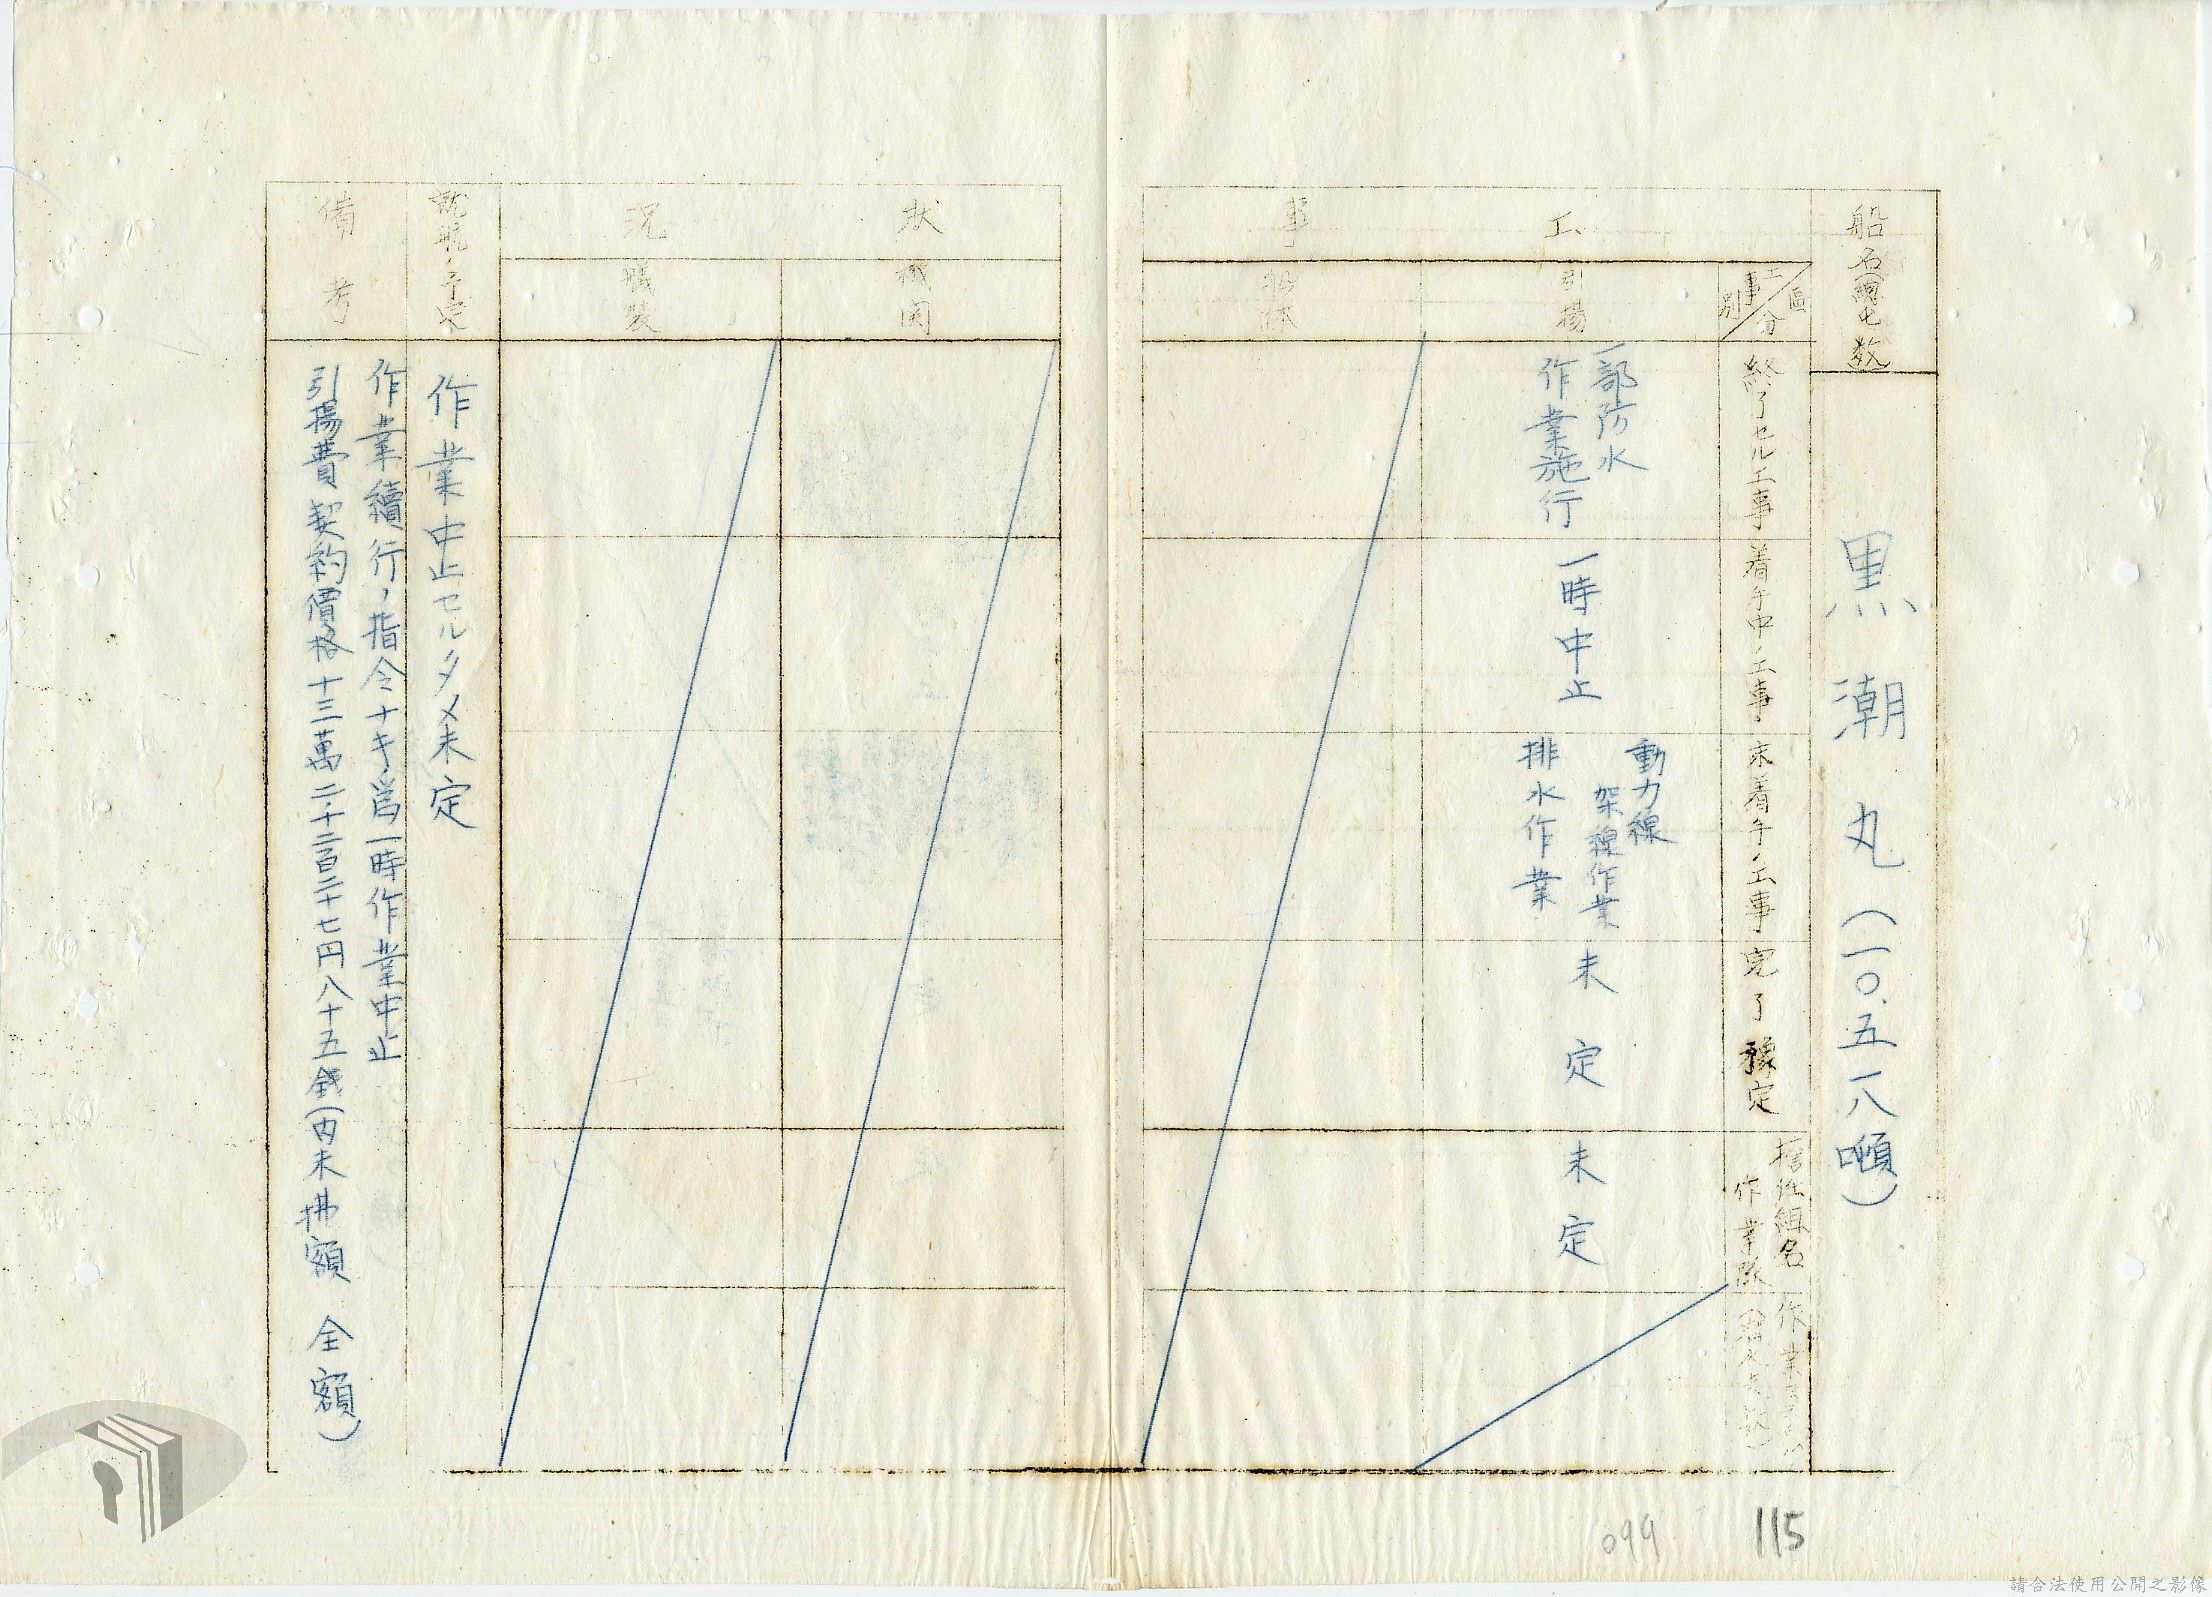 船名(總屯数)
黒潮丸(一〇.五一八噸)
工事
工事別
區分
終了セル工事
着手中ノ工事
未着手ノ工事
完了豫定
担任組名
作業隊
引揚
一部防水
作業施行
一時中止
動力線
架線作業
排水作業
未定
未定
船体
状況
機関
艤装
就航ノ予定
作業中止セルタメ未定
備考
作業續行ノ指令ナキ為一時作業中止
引揚費契約價格十三萬二千二百二十七円八十五銭(内未拂額 全額)
099
115
請合法使用公開之影像